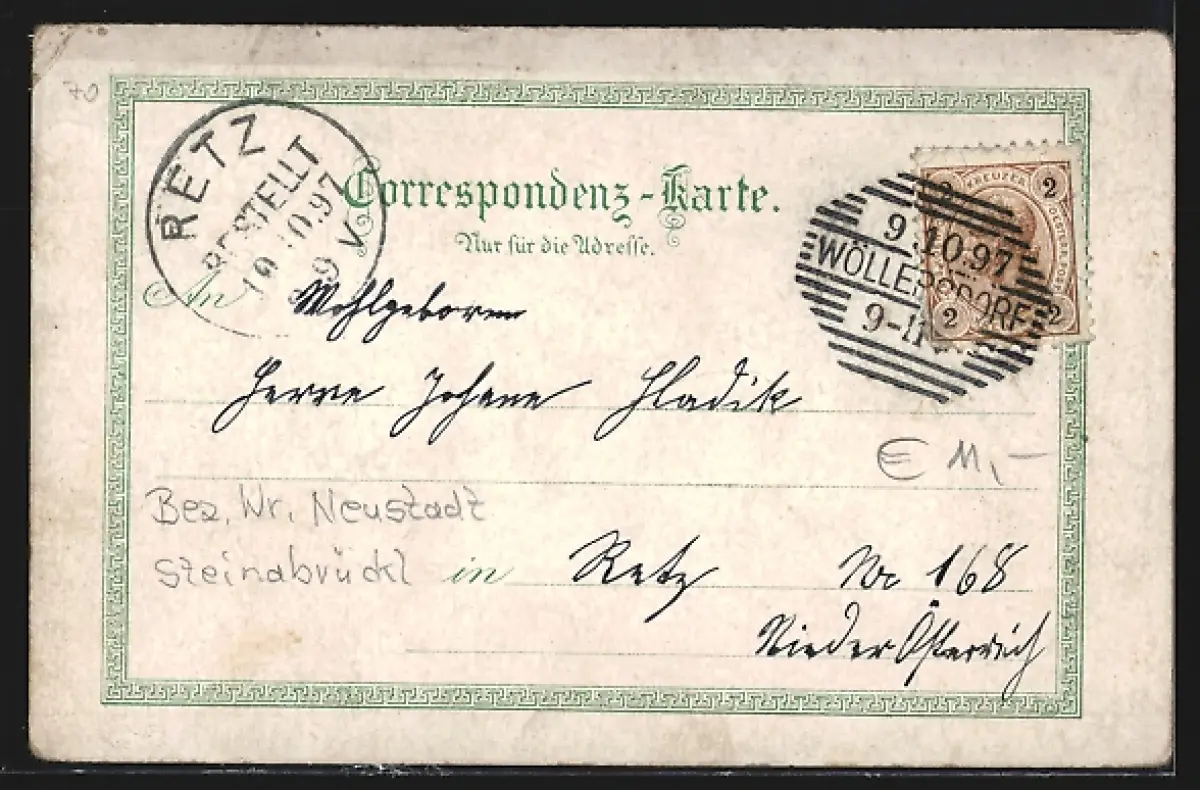 70
RETZ
BESTELLT
10.10.97
9 V
Correspondenz-Karte.
Nur für die Adresse.
KREUZER
2
2 2
9.10.97
WÖLLERSDORF
9-11
An Wohlgeboren
Herrn Johann Hladik
€ 11,-
Bez. Wr. Neustadt
Steinabrückl
in Retz Nr 168
Nieder Österreich